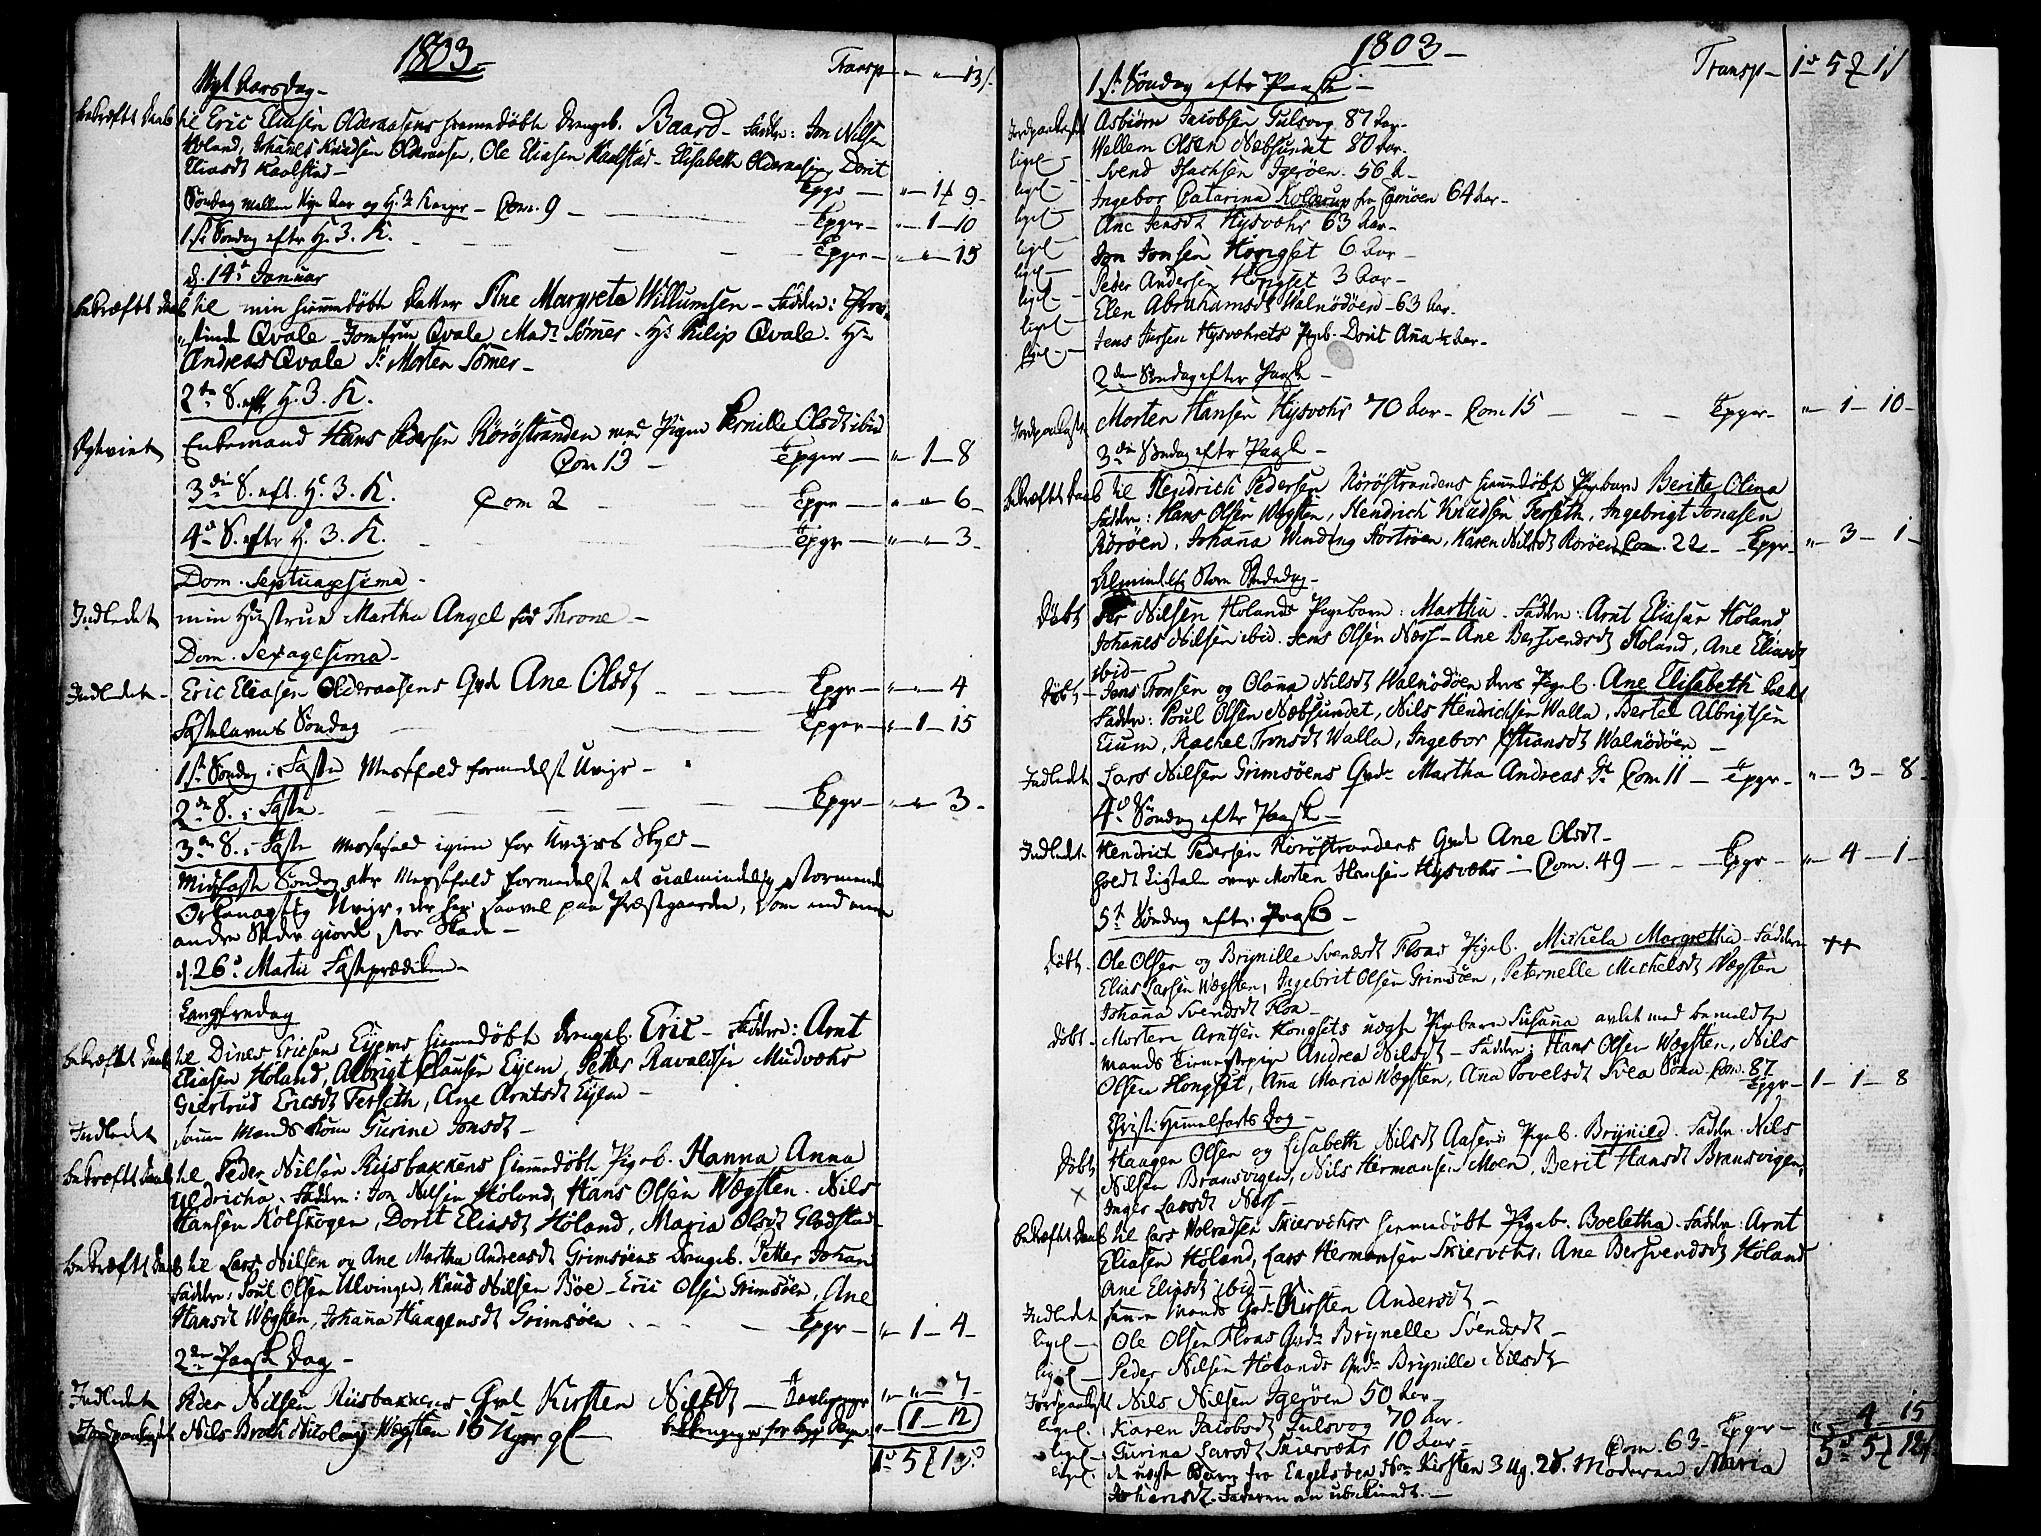 1803.
Transp – „ – „ – 13 s.
Nyt Aarsdag –
bekræftet Daab til Eric Eliasen Olderaasens hiemmedøbte Drengeb. Baard – Faddr: Jon Nilsen
Høland, Johanes Knudsen Olderaasen, Ole Eliasen Kaalstad – Elisabeth Olderaasen, Dorit
Eliasdt Kaalstad –
Tpgr – „ – 1 – 9 –
Søndag mellem Nyt Aar og H. 3 Konger – Com. 9 – Tpgr – „ – 1 – 10
1ste Søndag efter H. 3. K. – Tpgr – „ – „ – 15
d. 14de Januar
bekræftet Daab til min hiemmedøbte Datter Stine Margreta Willumsen – Faddr:
Qvale – Jomfrue Qvale, Mad: Sømer – Hr Philip Qvale. Hr
Andreas Qvale Sr Morten Sømer –
2den S. eft H. 3. K.
Egteviet Enkemand Hans Pedersen Rørøstranden med Pigen Pernille Olsdt ibid
Com 13 – Tpgr – „ – 1 – 8
3die S. eft. H. 3. K. Com 2 – Tpgr – „ – „ – 6 –
4de S. efter H. 3. K. – Tpgr – „ – „ – 3 –
Dom. Septuagesima –
Indledet min Hustrue Martha Angel for Throne –
Dom. Sexagesima –
Indledet – Eric Eliasen Olderaasens Qvde Ane Olsdt – Tpgr – „ – „ – 4
Fastelavns Søndag – Tpgr – „ – 1 – 15
1ste Søndag i Faste Messefald formedelst Uvejr –
2den S. i Faste – Tpgr – „ – „ – 3 –
3die S. i Faste Messefald igien for Uvejrs Skyld –
Midfaste Søndag atter Messefald formedelst et ualmindelig stormende
Orkanagtig Uvejr, der her saavel paa Præstegaarden, som ved
andre Steder giorde stor Skade –
d. 26de Martii Fasteprædiken –
Langfredag
bekræftet Daab til Dines Ericsen Eijems hiemmedøbte Drengeb. Eric – Faddere: Arnt
Eliasen Høland, Albrigt Clausen Eijem, Petter Ravaldsen Mudvæhr
Giertrud Ericsdt Forseth, Ane Arntsdt Eijem –
Indledet samme Mands Kone Gurine Jonsdt –
bekræftet Daab til Peder Nilsen Riisbakkens hiemmedøbte Pigeb. Hanna Anna
Uldricha – Faddr: Jon Nilsen Høland, Hans Olsen Wægsten. Nils
Hansen Kolskogen, Dorit Eliasdt Høland, Maria Olsdt Gladstad
bekræftet Daab til Lars Nilsen og Ane Martha Andreasdt Grimsøens Drengeb. Petter Johan
Faddr: Poul Olsen Ulvingen, Knud Nilsen Bøe – Eric Olsen Grimsøen, Ane
Hansdt Wægsten, Johana Haagensdt Grimsøen – Tpgr – „ – 1 – 4 –
2den Paaske Dag –
Indledet Peder Nilsen Riisbakkens Qvde Kirsten Nilsdt – „ – „ – 7 –
Jordpaakastet Nils Broch Nicolaij Wægsten 15 Uger gl – 1 – 12
1 5 13
1803 –
Transp – 1 5 13
1ste Søndag efter Paaske –
Jordpaakastet Asbiørn Jacobsen Fulsvog 87 Aar –
ligel – Wellem Olsen Næbsundet 80 Aar.
ligel – Svend Isachsen Igerøen. 56 A –
ligel – Ingebor Catarina Kolderup fra 64 Aar –
ligel – Ane Jensdt Hysvæhr 63 Aar –
ligel – Jon Jonsen Hongset 6 Aar –
ligel – Peder Andersen Hongset 3 Aar –
ligel – Elen Abrahamsdt Walnødøen – 63 Aar.
ligel – Jens Jensen Hysvæhrets Pigeb. Dorit Ana ½ Aar –
2den Søndag efter Paaske –
Jordpaakastet Morten Hansen Hysvæhr 70 Aar – Com 15 – Tpgr – „ – 1 – 10 –
3die Søndag efter Paaske –
bekræftet Daab til Hendrich Pedersen Rørøstrandens hiemmedøbte Pigebarn Beritte Olina
Faddr: Hans Olsen Wægsten, Hendrich Knudsen Forseth, Ingebrigt Jonasen
Rørøen, Johana Winding Stortrøen, Karen Nilsdt Rorøen Com. 22 – Tpgr – „ – 3 – 1 –
Almindelig Store Bededag –
Døbt Per Nilsen Hølands Pigebarn: Martha. Faddr: Arnt Eliasen Høland
Johanes Nilsen ibid. Jens Olsen Næss – Ane Bersvendsdt Høland, Ane Eliasdt
ibid –
Døbt – Jens Tronsen og Olana Nilsdt Walnødøen deres Pigeb. Ane Elisabeth
Faddr: Poul Olsen Næbsundet, Nils Hendrichsen Walla, Bertel Albrigtsen
Eium, Rachel Tronsdt Walla, Ingebor Walnødøen –
Indledet Lars Nilsen Grimsøens Qvde Martha Andreas Dt Com 11 – Tpgr – „ – 3 – 8 –
4de Søndag efter Paaske –
Indledet – Hendrich Pedersen Rørøstrandens Qvde Ane Olsdt –
holdt Ligtale over Morten Hansen Hysvæhr – Com. 49 – Tpgr – „ – 4 – 1 –
5te Søndag efter Paaske –
Døbt – Ole Olsen og Brynille Svendsdt Floas Pigeb. Michela Margretha – Faddr ++
Elias Larsen Wægsten, Ingebrit Olsen Grimsøen, Peternelle Michelsdt Wægsten
Johana Svendsdt Floa –
Døbt – Morten Arntsen Hongsets uægte Pigebarn Susana avlet med bemeldte
Mands Tienestepige Andrea Nilsdt – Faddr: Hans Olsen Wægsten, Nils
Olsen Hongset, Ana Maria Wægsten, Ana Povelsdt Com. 87
Tpgr – 1 – 1 – 8
Christi Himmelfarts Dag –
Døbt Haagen Olsen og Lisabeth Nilsdt Aasens Pigeb. Brynild. Faddr. Nils
× Nilsen Bransvigen, Nils Hermansen Moen, Berit Hansdt Bransvigen,
Inger Larsdt Næss –
bekræftet Daab til Lars Wolradsen Skiervæhrs hiemmedøbte Pigeb. Boeletha – Faddr: Arnt
Eliasen Høland, Lars Hermansen Skiervæhr, Ane Bersvendsdt Høland
Ane Eliasdt ibid –
Indledet samme Mands Qvde Kirsten Andersdt –
ligel – Ole Olsen Floas Qvde Brynelle Svendsdt –
ligel – Peder Nilsen Hølands Qvde Brynille Nilsdt
Jordpaakastet Nils Nilsen Igerøen 50 Aar –
ligel. Karen Jacobsdt Fulsvog 70 Aar –
ligel – Gurina Larsdt Skiervæhr 10 Aar – Com. 63 – Tpgr – „ – 4 – 15
ligel – de uægte Barn fra Engelsøen Kirsten 3 Ug. 2 d. Moderen Maria 5 5 12
Johansdt. Faderen er ubekiendt. –